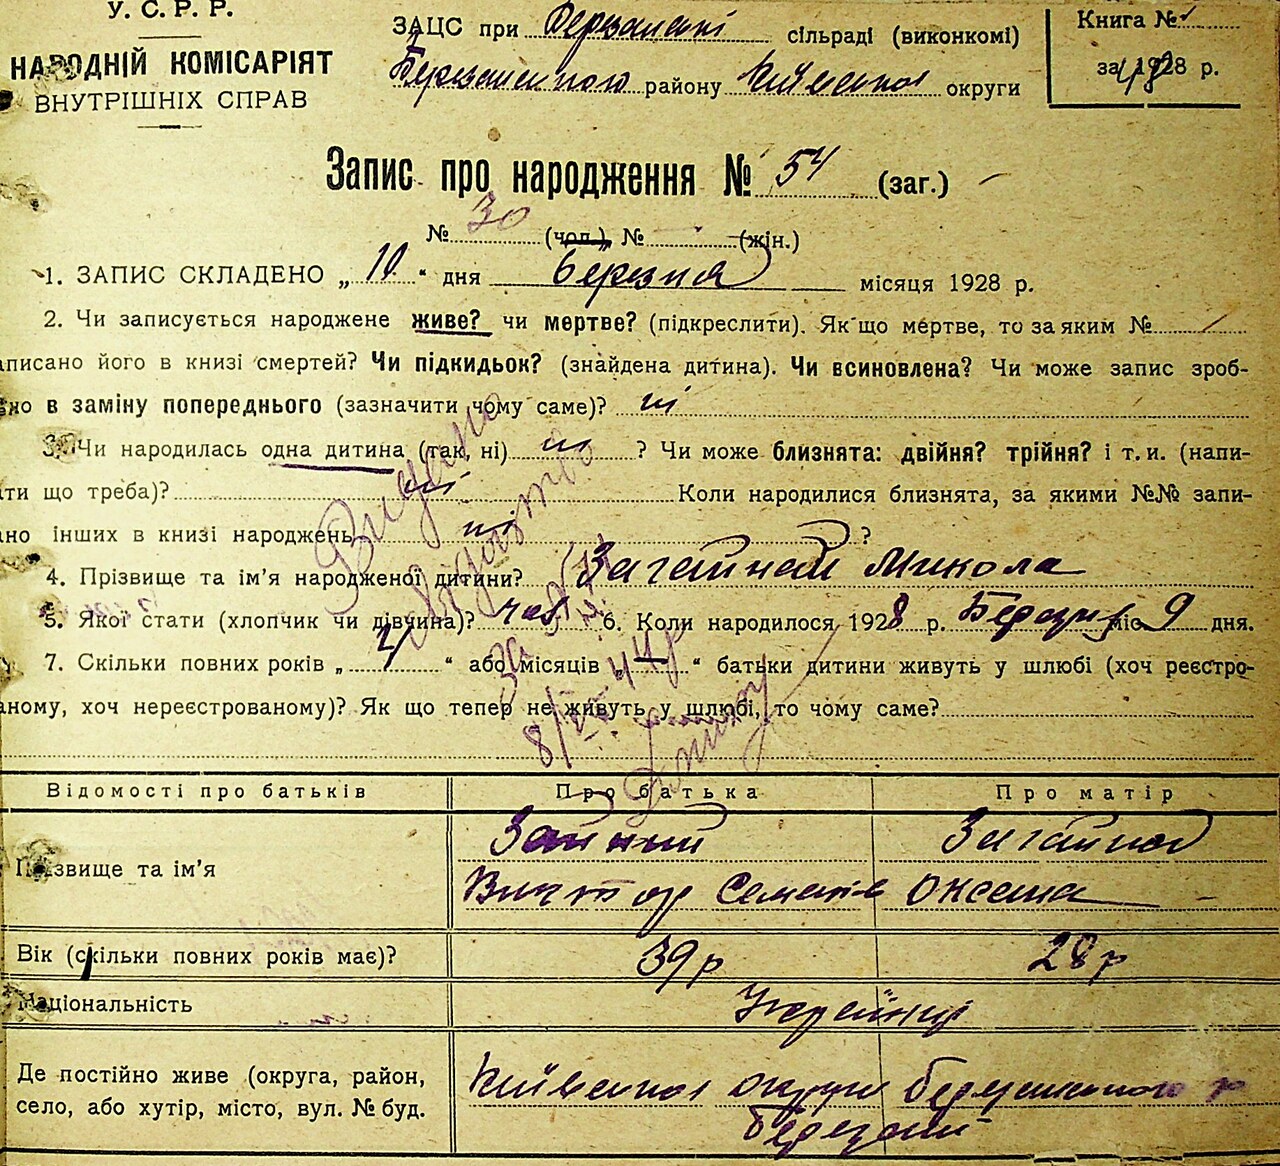 У. С. Р. Р.
НАРОДНІЙ КОМІСАРІЯТ
ВНУТРІШНІХ СПРАВ
ЗАЦС при сільраді (виконкомі)
району Київської округи
Книга №
за 1928 р.
Запис про народження № 54 (заг.)
№ 30 (чол.) № (жін.)
1. ЗАПИС СКЛАДЕНО „ 10 “ дня Березня місяця 1928 р.
2. Чи записується народжене живе? чи мертве? (підкреслити). Як що мертве, то за яким №
аписано його в книзі смертей? Чи підкидьок? (знайдена дитина). Чи всиновлена? Чи може запис зроб-
но в заміну попереднього (зазначити чому саме)? ні
3. Чи народилась одна дитина (так, ні) ні ? Чи може близнята: двійня? трійня? і т. и. (напи-
ти що треба)? ні Коли народилися близнята, за якими №№ запи-
но інших в книзі народжень ні ?
4. Прізвище та ім’я народженої дитини? Загайной Микола
5. Якої стати (хлопчик чи дівчина)? чол. 6. Коли народилося 1928 р. Березня міс 9 дня.
7. Скільки повних років „ “ або місяців „ “ батьки дитини живуть у шлюбі (хоч реєстро-
аному, хоч нереєстрованому)? Як що тепер не живуть у шлюбі, то чому саме?
Видано
свідоцтво
за
8/VII 44 р
Відомості про батьків Про батька Про матір
Прізвище та ім’я
Загайной
Виктор Семенів Оксана
Вік (скільки повних років має)? 39 р 28 р
Національність Українці
Де постійно живе (округа, район, Київської округи р
село, або хутір, місто, вул. № буд. Березані